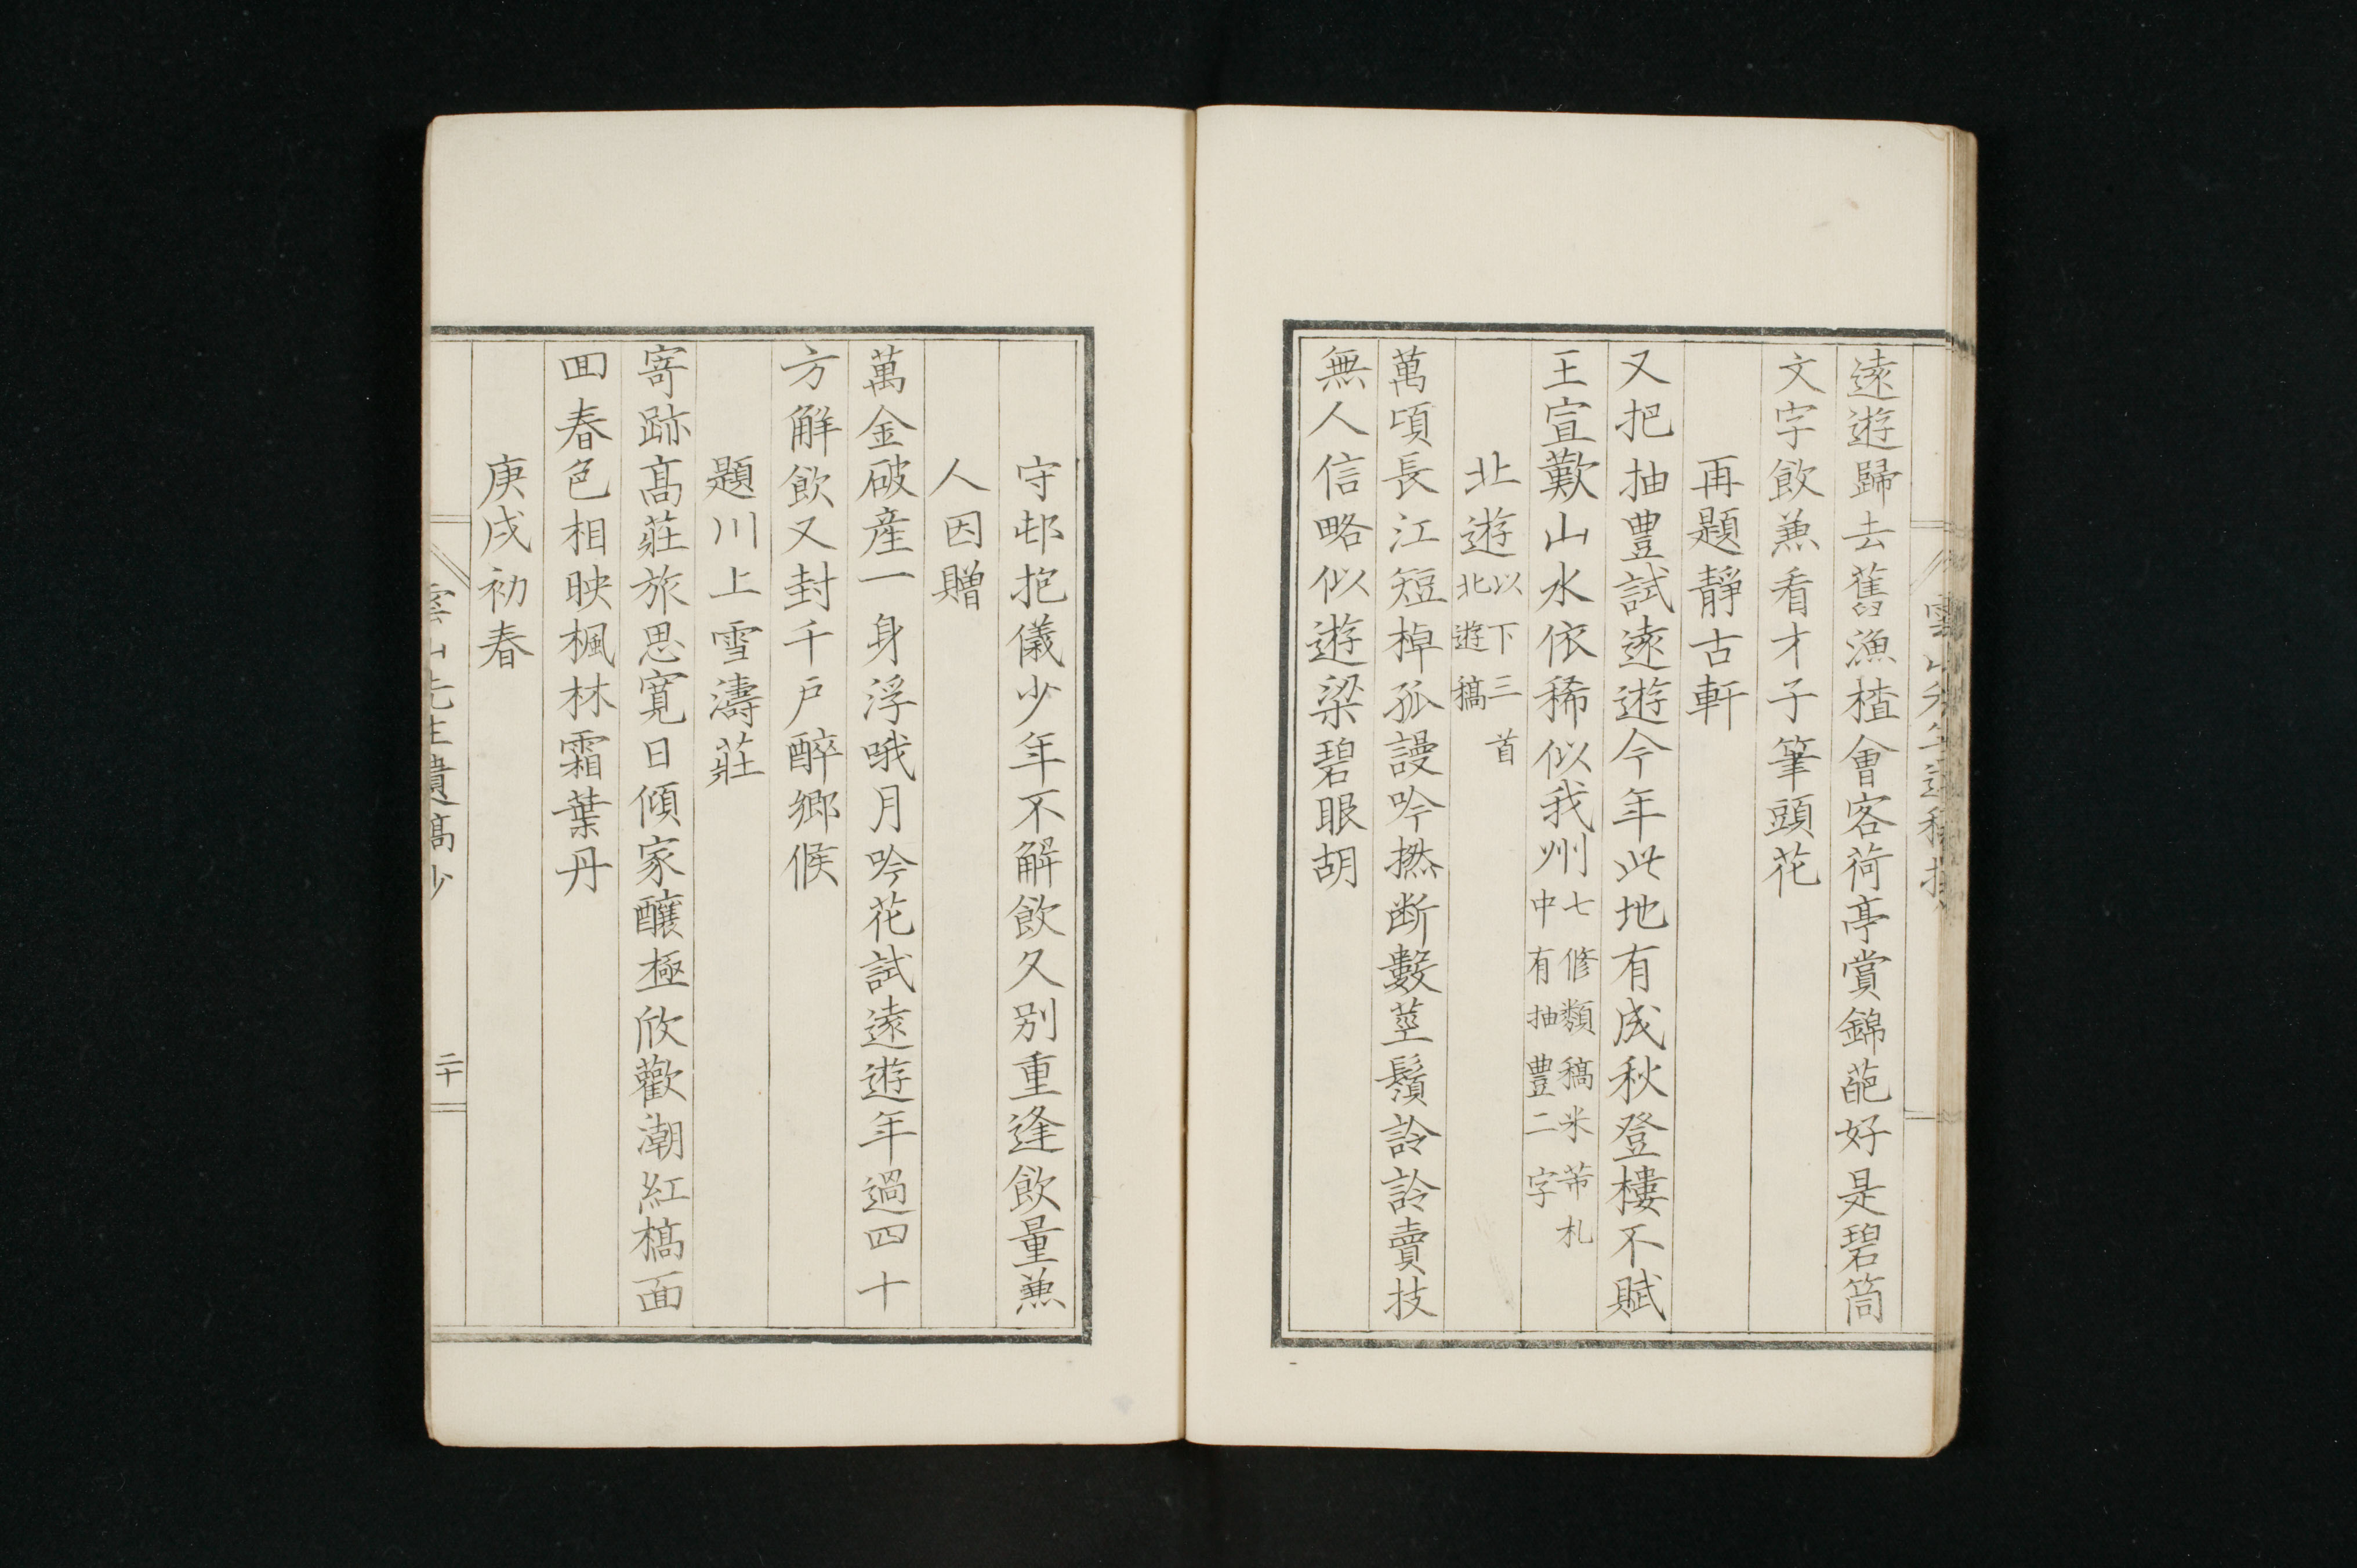 遠遊歸去舊漁楂會客荷亭賞錦葩好是碧筒
文字飲兼看才子筆頭花
再題靜古軒
又把抽豊試遠遊今年此地有成秋登樓不賦
王宣歎山水依稀似我州七修類稿米芾札中有抽豊二字
北遊以下三首北遊稿
萬頃長江短棹孤謾吟撚断數莖鬚詅詅賣技
無人信略似遊梁碧眼胡
守邨抱儀少年不解飲久别重逢飲量兼
人因贈
萬金破産一身浮哦月吟花試遠遊年過四十
方解飲又封千戸醉鄉候
題川上雪濤莊
寄跡髙莊旅思寛日傾家釀極欣歡潮紅槁面
囬春色相映楓林霜葉丹
庚戌初春
雲山先生遺稿抄
二十